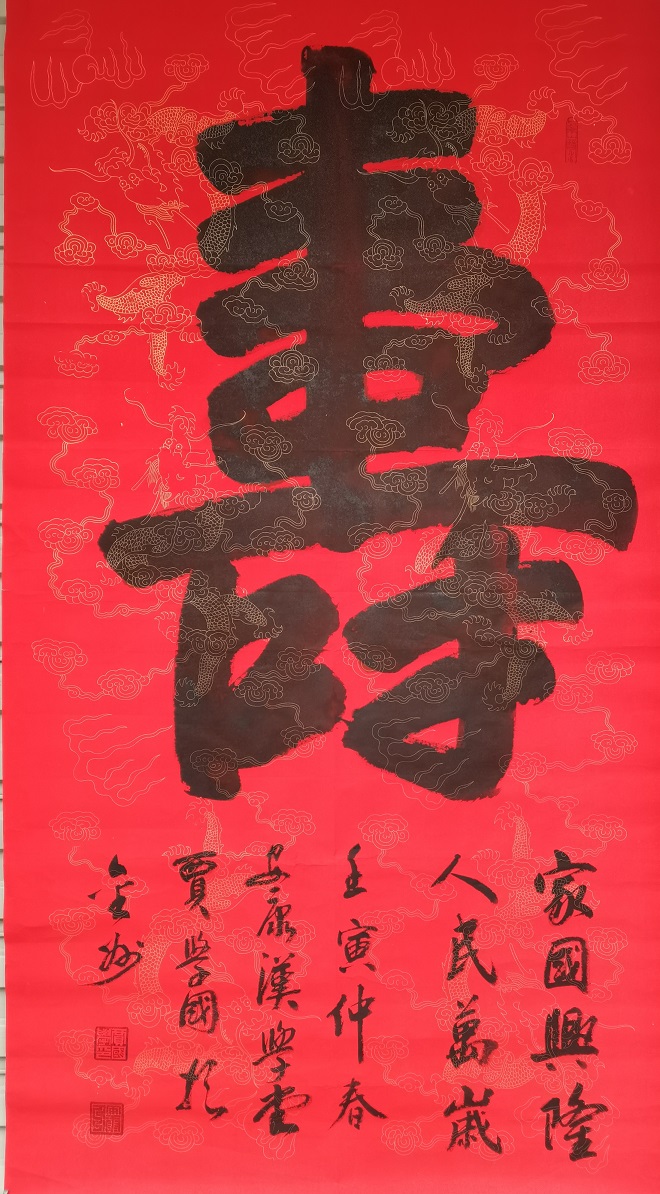 壽
家國興隆
人民萬歲
壬寅仲春
安康漢學堂
賈學國於
金州